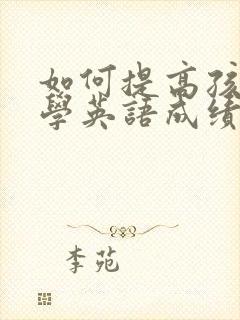 如何提高孩
學英語成績
李苑